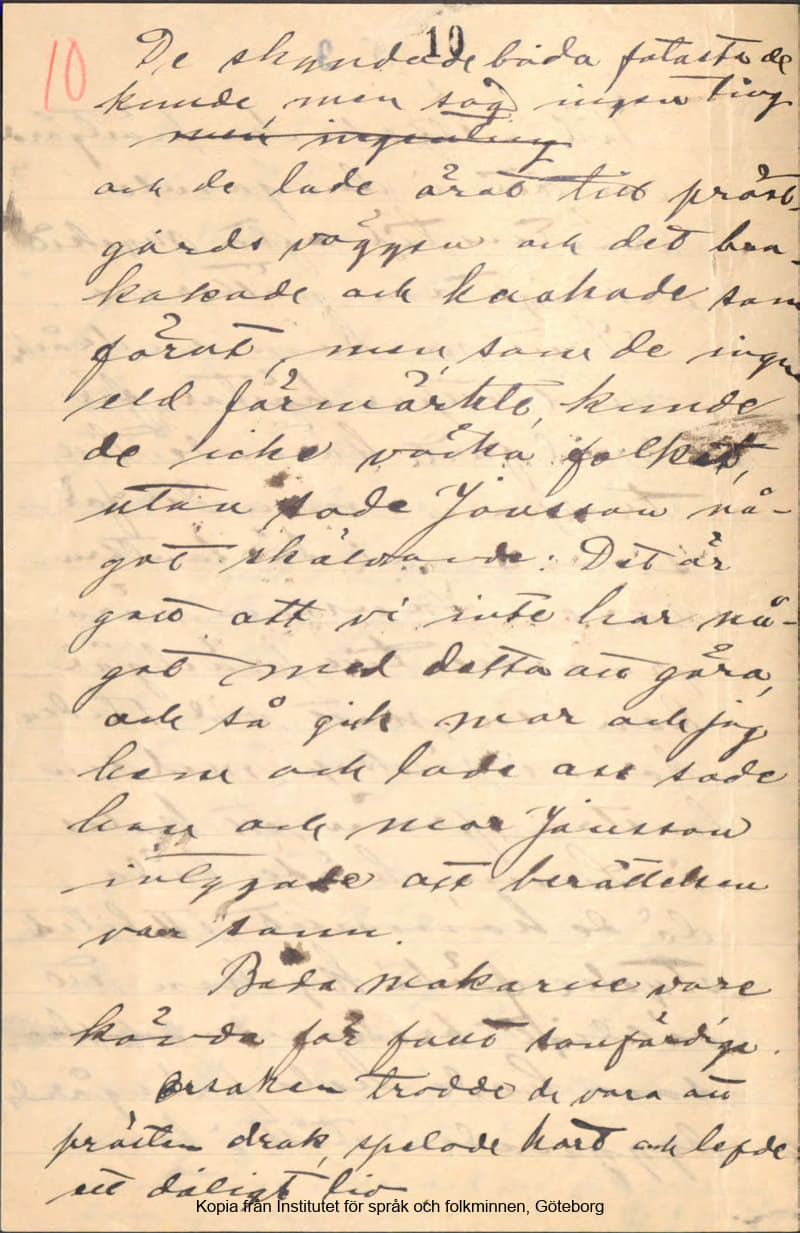 10
10
De skyndade båda fotaste de
kunde, men såg ingen ting
men ingenting
och de lade örat till präst-
gårds väggen och det bra-
kakade och knakade som
förut, men, som de ingen
eld förmärkte, kunde
de icke väcka folket,
utan sade Jonsson nå-
got skälvande: Det är
gott att vi inte har nå-
got med detta att göra,
och så gick mor och jag
hem och lade oss sade
han och mor Jonsson
intygade att berättelsen
var sann.
Båda makarne vore
kända för fullt sanfärdiga.
Orsaken trodde de vara att
prästen drak, spelade kort och lefde
ett dåligt liv
Kopia från Institutet för språk och folkminnen, Göteborg